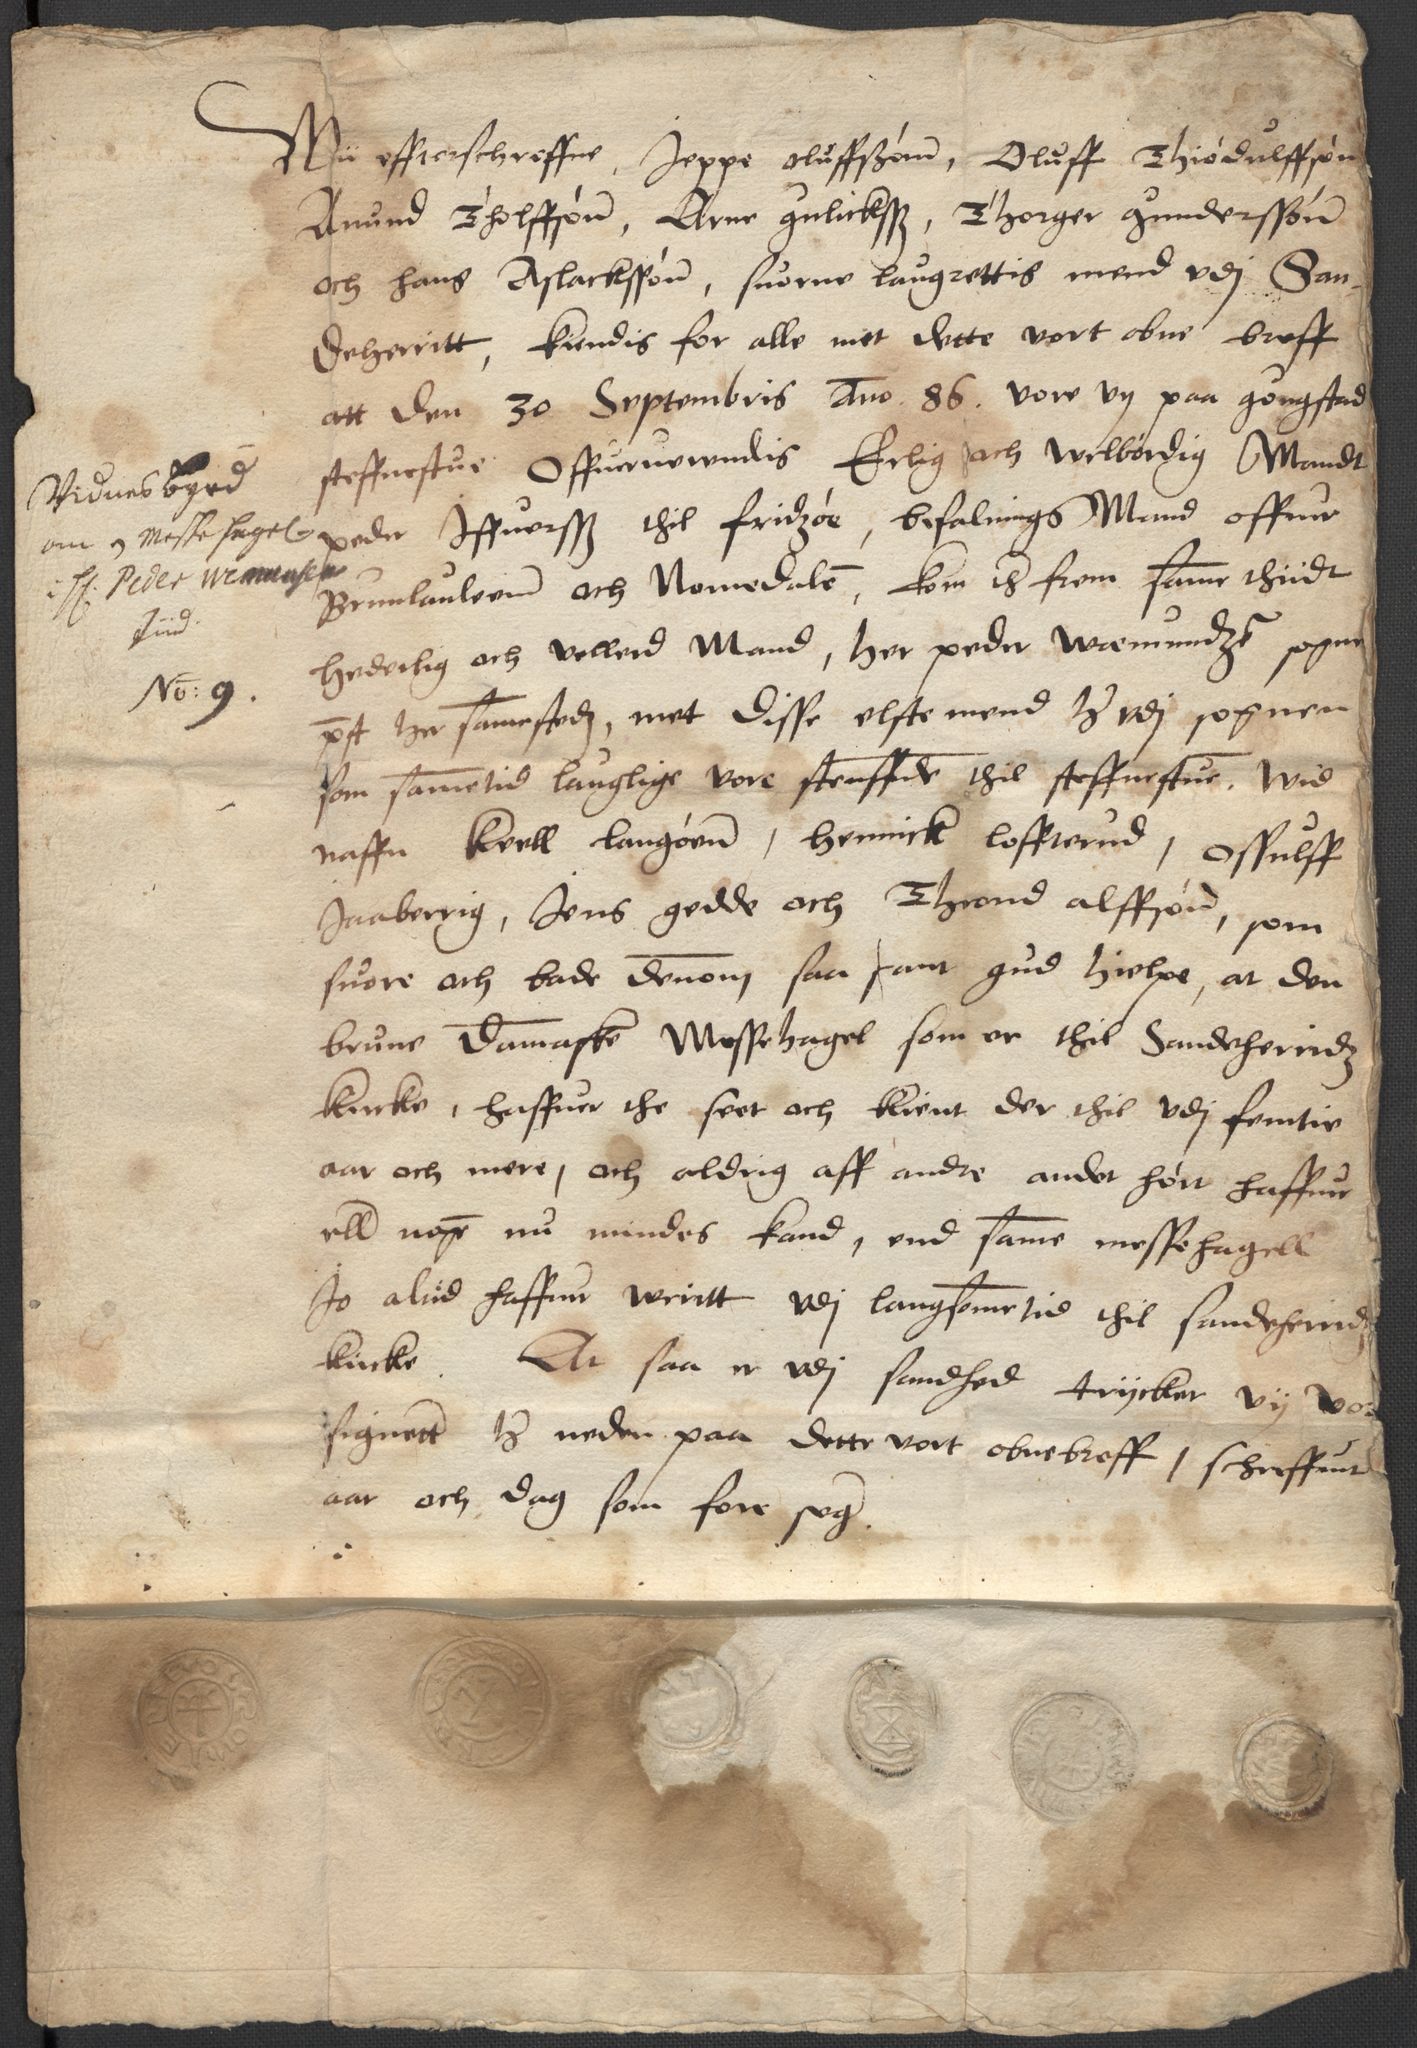 Wii effterschreffne, Jeppe oluffszønn, Oluff Thiodulffsøn
Anund Tholffsønn, Arne gulicksß, Thorger gunderssønn
och hans Aslacksønn, suorne laugrettis mend vdj San-
deherritt, kiendis for alle met dette vort obne breff
att den 30 Septembris Año. 86. vore vij paa gougstad
steffnestue Offueruerendis Erlig och welbørdig Mandt
peder Iffuersß thil fridzøe, befalnings Mand offuer
Brunlauleenn och Nomedalē, kom th frem same thiidt
hederlig och vellerd Mand, her peder wæmundzß sogne
pst her samestedz, met disse elste mend h vdj sognen
som sametid lauglige vore steuffnde thil steffnestue. Wid
naffn Kiell langøenn, hennick loffterud, Ossulff
Jaaberrig, Jens gedde och Thrond alffsønn, som
suore och bade dennom saa sant gud hielpe, at den
brune Damaske Messehagel som er thil Sandeherridz
kircke, haffuer the seet och kient der thil vdj femtie
aar och mere, och aldrig aff andre andet hørt haffuer
ell nogē nu mindes kand, end same messehagell
Jo altid haffuer weritt vdj langsometid thil sandeherridz
kircke. At saa er vdj sandhed trycker vij vor
signett h neden paa dette vort obnebreff, schreffuit
aar och dag som fore seg.
Vidnesbyrd
om 1 Messehagel
i H. Peder Wemunsen
Tiid.
No: 9.